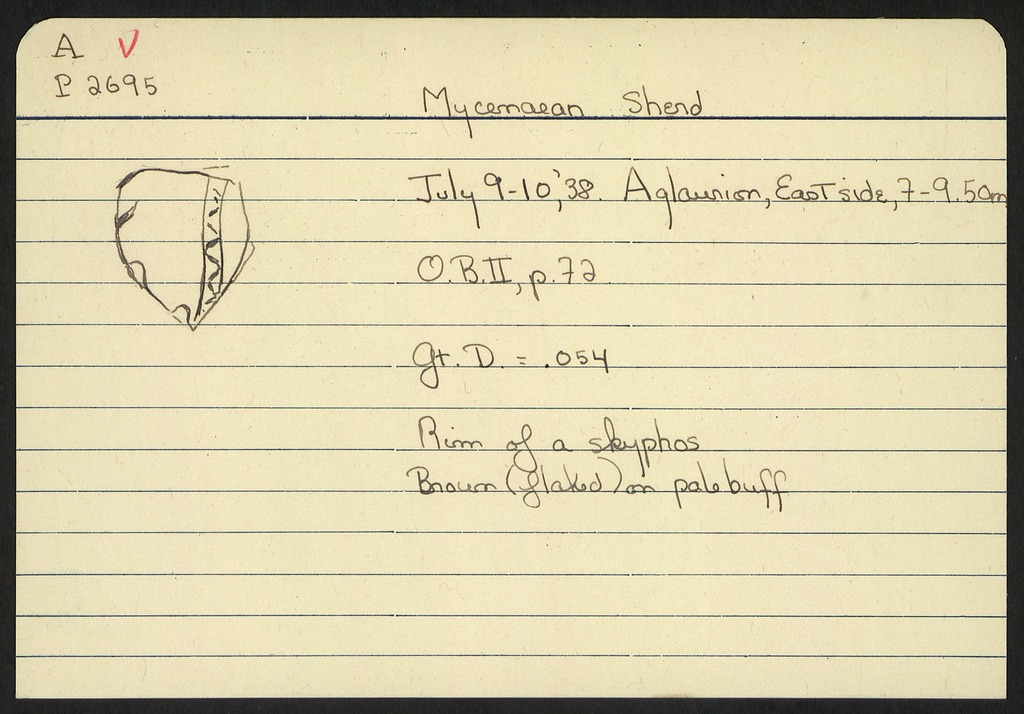 A V
P 2695
Mycenaean Sherd
July 9-10,'38. Aglaurion, East side, 7-9.50m
O.B.II, p.72
Gr. D. = .054
Rim of a skyphos
Brown (flaked) on pale buff